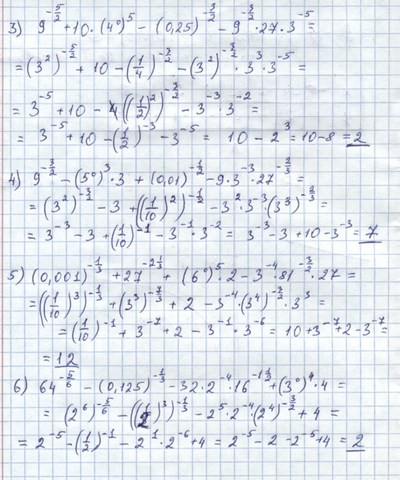 3) 9^(-5/2) + 10 · (4⁰)⁵ − (0,25)^(-3/2) − 9^(-3/2) · 27 · 3⁻⁵ =
= (3²)^(-5/2) + 10 − (1/4)^(-3/2) − (3²)^(-3/2) · 3³ · 3⁻⁵ =
= 3⁻⁵ + 10 − ((1/2)²)^(-3/2) − 3⁻³ · 3⁻² =
= 3⁻⁵ + 10 − (1/2)⁻³ − 3⁻⁵ = 10 − 2³ = 10 − 8 = 2
4) 9^(-3/2) − (5⁰)³ · 3 + (0,01)^(-1/2) − 9 · 3⁻³ · 27^(-2/3) =
= (3²)^(-3/2) − 3 + ((1/10)²)^(-1/2) − 3² · 3⁻³ · (3³)^(-2/3) =
= 3⁻³ − 3 + (1/10)⁻¹ − 3⁻¹ · 3⁻² = 3⁻³ − 3 + 10 − 3⁻³ = 7
5) (0,001)^(-1/3) + 27^(-2 1/3) + (6⁰)⁵ · 2 − 3⁻⁴ · 81^(-3/2) · 27 =
= ((1/10)³)^(-1/3) + (3³)^(-7/3) + 2 − 3⁻⁴ · (3⁴)^(-3/2) · 3³ =
= (1/10)⁻¹ + 3⁻⁷ + 2 − 3⁻¹ · 3⁻⁶ = 10 + 3⁻⁷ + 2 − 3⁻⁷ =
= 12
6) 64^(-5/6) − (0,125)^(-1/3) − 32 · 2⁻⁴ · 16^(-1 1/2) + (3⁰)⁴ · 4 =
= (2⁶)^(-5/6) − ((1/2)³)^(-1/3) − 2⁵ · 2⁻⁴ · (2⁴)^(-3/2) + 4 =
= 2⁻⁵ − (1/2)⁻¹ − 2¹ · 2⁻⁶ + 4 = 2⁻⁵ − 2 − 2⁻⁵ + 4 = 2